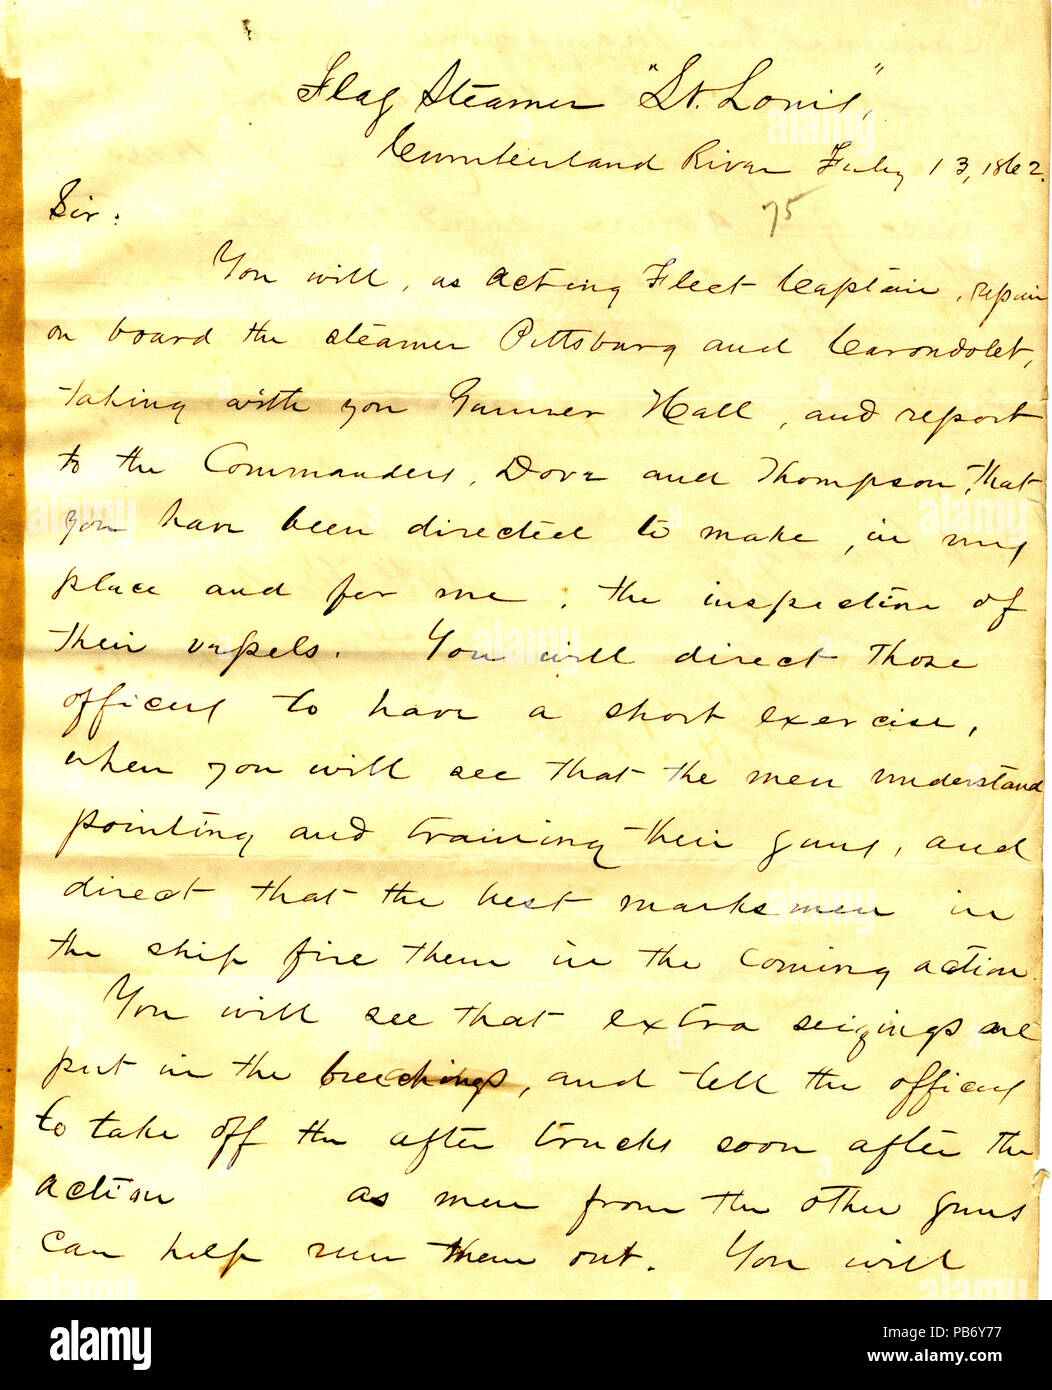 Flag Steamer "St. Louis",
Cumberland River Feby 13, 1862.
75
Sir:
You will, as acting Fleet Captain, repair
on board the steamer Pittsburg and Carondolet,
taking with you Gunner Hall, and report
to the Commanders, Dove and Thompson, that
you have been directed to make, in my
place and for me, the inspection of
their vessels. You will direct those
officers to have a short exercise,
when you will see that the men understand
pointing and training their guns, and
direct that the best marksmen in
the ship fire them in the coming action.
You will see that extra seizings are
put in the breechings, and tell the officers
to take off the after trucks soon after the
action as men from the other guns
can help run them out. You will
alamy
Image ID: PB6Y77
www.alamy.com